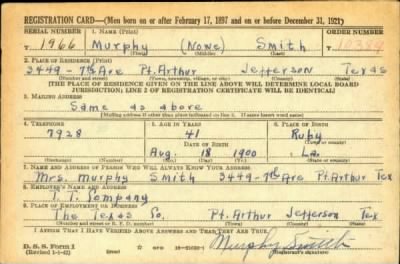 REGISTRATION CARD—(Men born on or after February 17, 1897 and on or before December 31, 1921)
SERIAL NUMBER 1. NAME (Print) ORDER NUMBER
T 1966 Murphy (None) Smith 10389
(First) (Middle) (Last)
2. PLACE OF RESIDENCE (Print)
3449 - 7th Are Pt. Arthur Jefferson Texas
(Number and street) (Town, township, village, or city) (County) (State)
[THE PLACE OF RESIDENCE GIVEN ON THE LINE ABOVE WILL DETERMINE LOCAL BOARD
JURISDICTION; LINE 2 OF REGISTRATION CERTIFICATE WILL BE IDENTICAL]
3. MAILING ADDRESS
Same as above
[Mailing address if other than place indicated on line 2. If same insert word same]
4. TELEPHONE 5. AGE IN YEARS 6. PLACE OF BIRTH
7928 41 Ruby
DATE OF BIRTH (Town or county)
Aug. 18 1900 La.
(Exchange) (Number) (Mo.) (Day) (Yr.) (State or country)
7. NAME AND ADDRESS OF PERSON WHO WILL ALWAYS KNOW YOUR ADDRESS
Mrs. Murphy Smith 3449-7th Are Pt Arthur Tex
8. EMPLOYER'S NAME AND ADDRESS
T. T. Company
9. PLACE OF EMPLOYMENT OR BUSINESS
The Texas Co. Pt. Arthur Jefferson Tex
(Number and street or R. F. D. number) (Town) (County) (State)
I AFFIRM THAT I HAVE VERIFIED ABOVE ANSWERS AND THAT THEY ARE TRUE.
D. S. S. Form 1
(Revised 1-1-42) (over) Murphy Smith
(Registrant's signature)